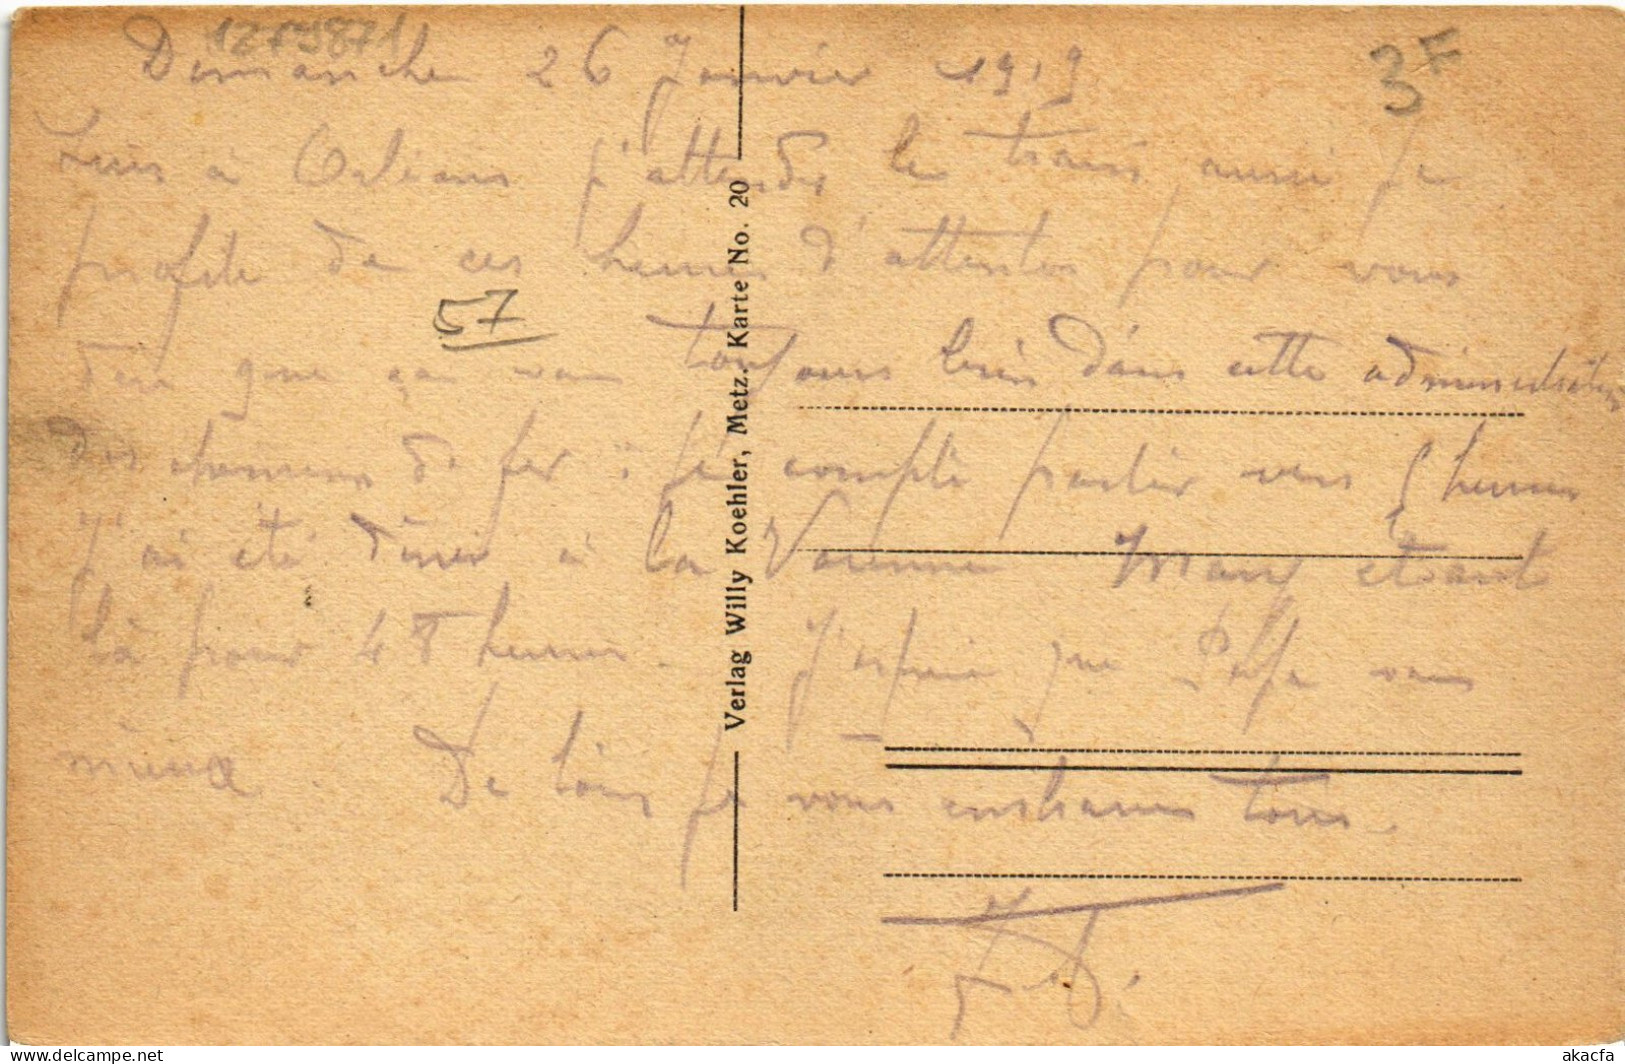 1279871
3F
Dimanche 26 Janvier 1919
Suis à Orléans j'attends le train aussi je
profite de ces heures d'attente pour vous
dire que ça va toujours bien dans cette administration
des chemins de fer : je compte partir vers 5 heures
J'ai été dîner à la Varenne Many étant
là pour 48 heures. J'espère que va
mieux. De loin je vous embrasse tous.
57
Verlag Willy Koehler, Metz. Karte No. 20
akacfa